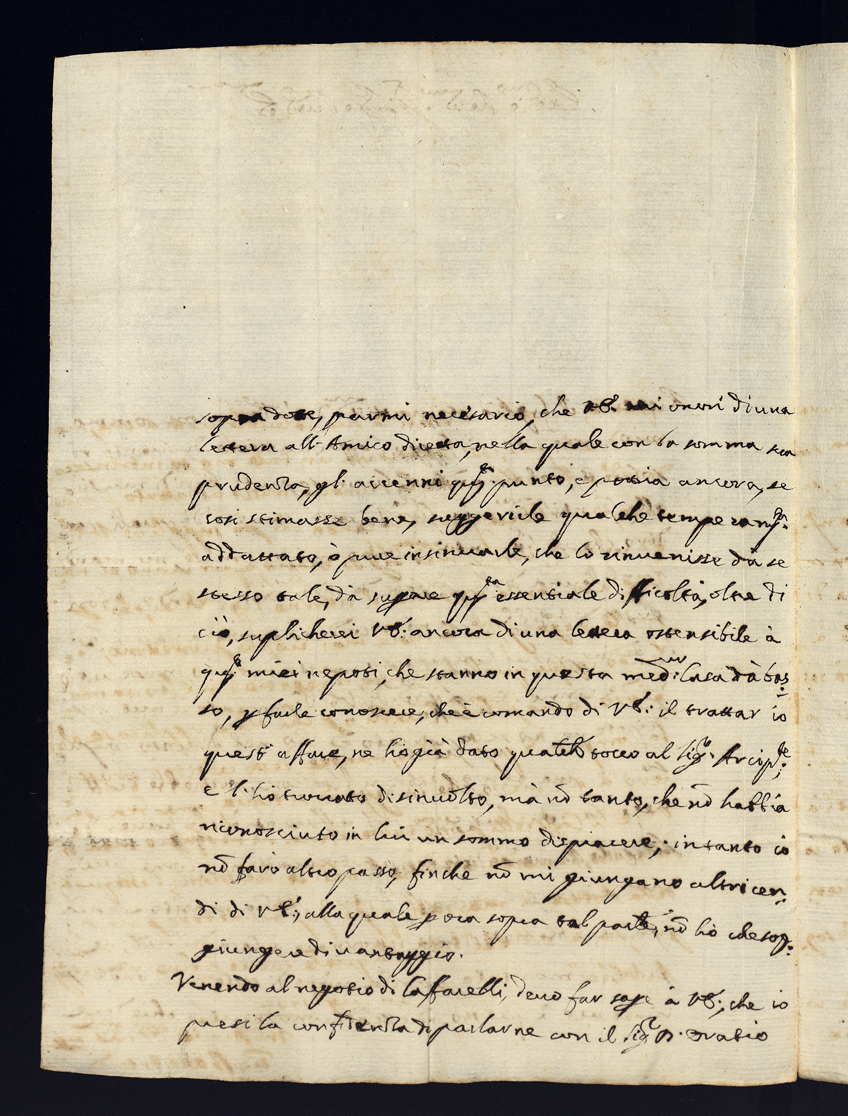 sopra dote, parmi necesario, che VS: mi onori di una
lettera all'Amico diretta, nella quale con la somma sua
prudenza, gl'accenni questo punto, e possa ancora, se
così stimasse bene, suggerirle qualche temperam.to
addattato, ò pure insinuarle, che lo rinvenisse dà se
stesso tale, dà superare questa essentiale difficoltà, oltre di
ciò, suplicherei VS: ancora di una lettera ostensibile à
questi miei nepoti, che stanno in questa med:ma Casa dà bas-
so, p farle conoscere, che è comando di VS: il trattar io
quest'affare, ne hò già dato qualche tocco al Sig.r Arcip.te
e l'hò trovato disinvolto, mà nõ tanto, che nõ habbia
riconosciuto in lui un sommo dispiacere; intanto io
nõ farò altro passo, finche nõ mi giungano altri cen-
di di VS:, alla quale p ora sopra tal parte, nõ hò che sog-
giungere di vantaggio.
Venendo al negotio di Caffarelli, devo far sape à VS:, che io
presi la confidenza di parlarne con il Sig.r D. Oratio